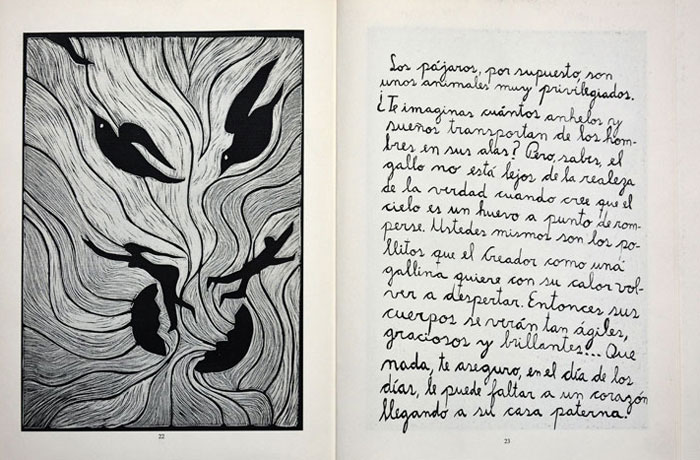 Los pájaros, por supuesto, son
unos animales muy privilegiados.
¿Te imaginas cuántos anhelos y
sueños transportan de los hom-
bres en sus alas? Pero, sabes, el
gallo no está lejos de la realeza
de la verdad cuando cree que el
cielo es un huevo a punto de rom-
perse. Ustedes mismos son los po-
llitos que el Creador como una
gallina quiere con su calor vol-
ver a despertar. Entonces sus
cuerpos se verán tan ágiles,
graciosos y brillantes... Que
nada, te aseguro, en el día de los
días, le puede faltar a un corazón
llegando a su casa paterna.
22
23